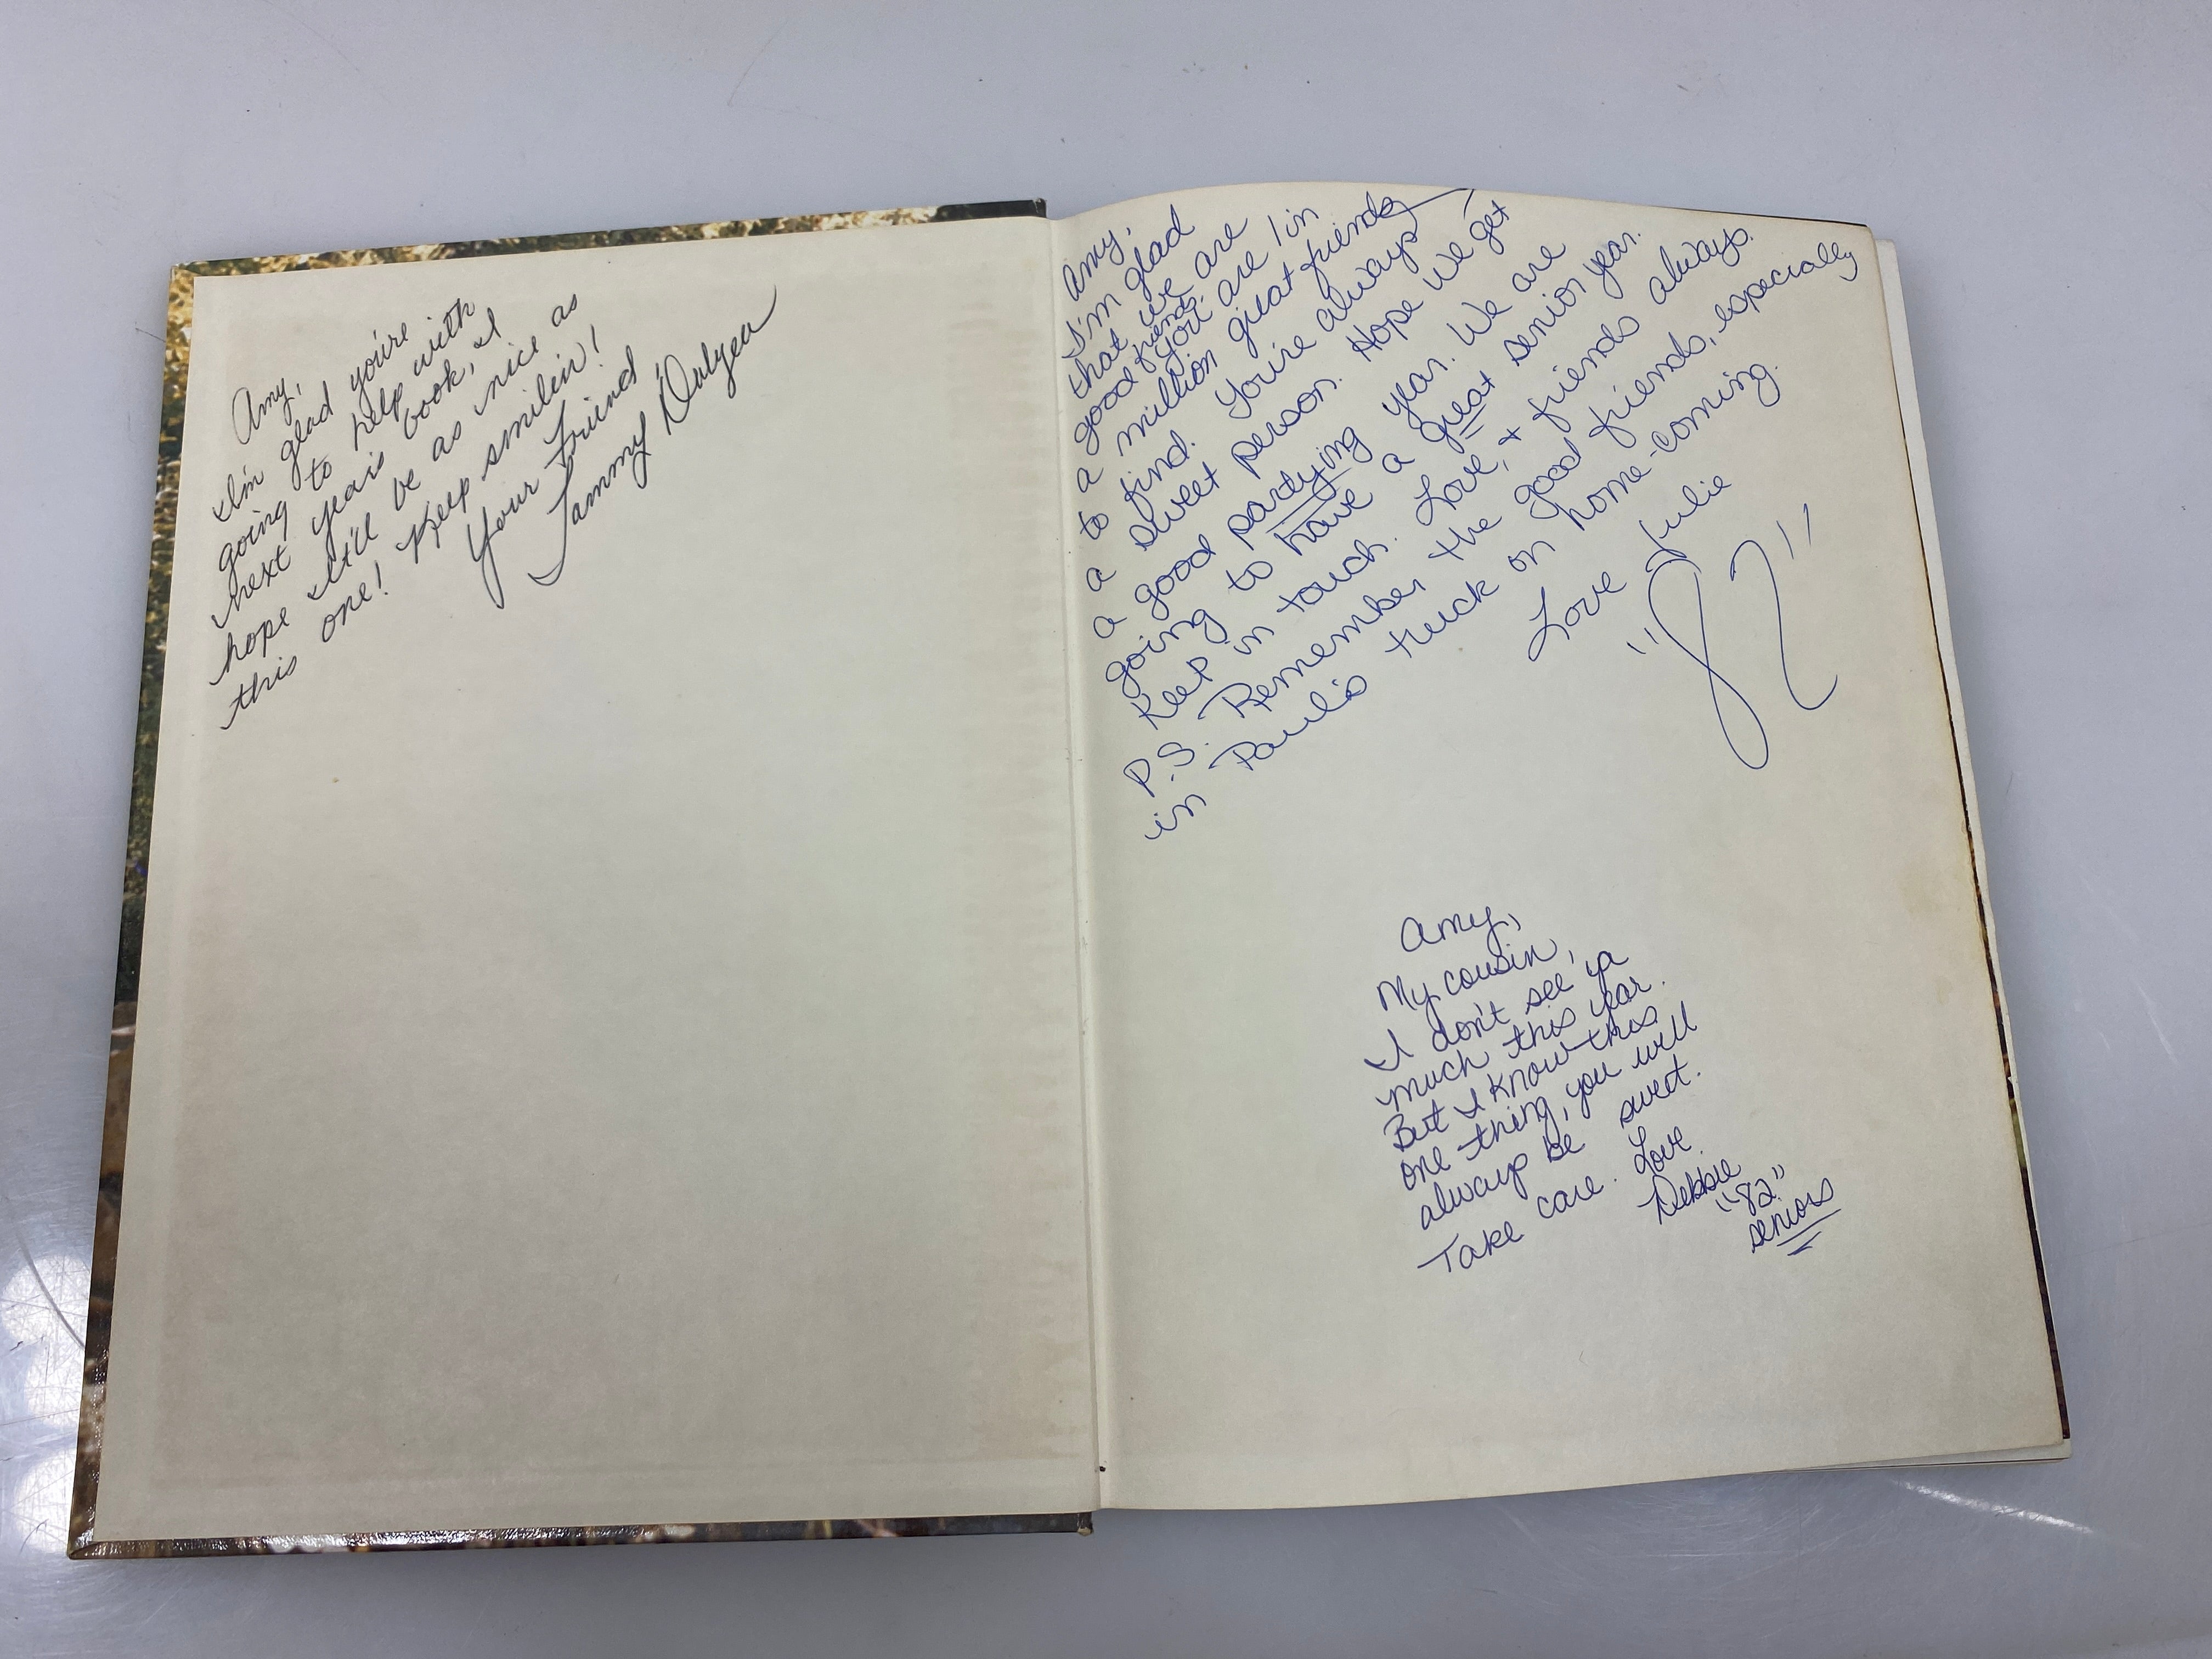 Amy,
I'm glad you're
going to help with
next year's book, I
hope it'll be as nice as
this one! Keep smilin'!
Your Friend,
Tammy
Amy,
I'm glad
that we are
good friends. You are 1 in
a million great friends
to find. You're always
a sweet person. Hope we get
a good partying year. We are
going to have a great senior year.
Keep in touch. Love, + friends always.
P.S. Remember the good friends, especially
in Paul's truck on home-coming.
Love Julie
"82"
Amy,
My cousin,
I don't see ya
much this year.
But I know this
one thing, you will
always be sweet.
Take care. Love
Debbie
"82"
seniors